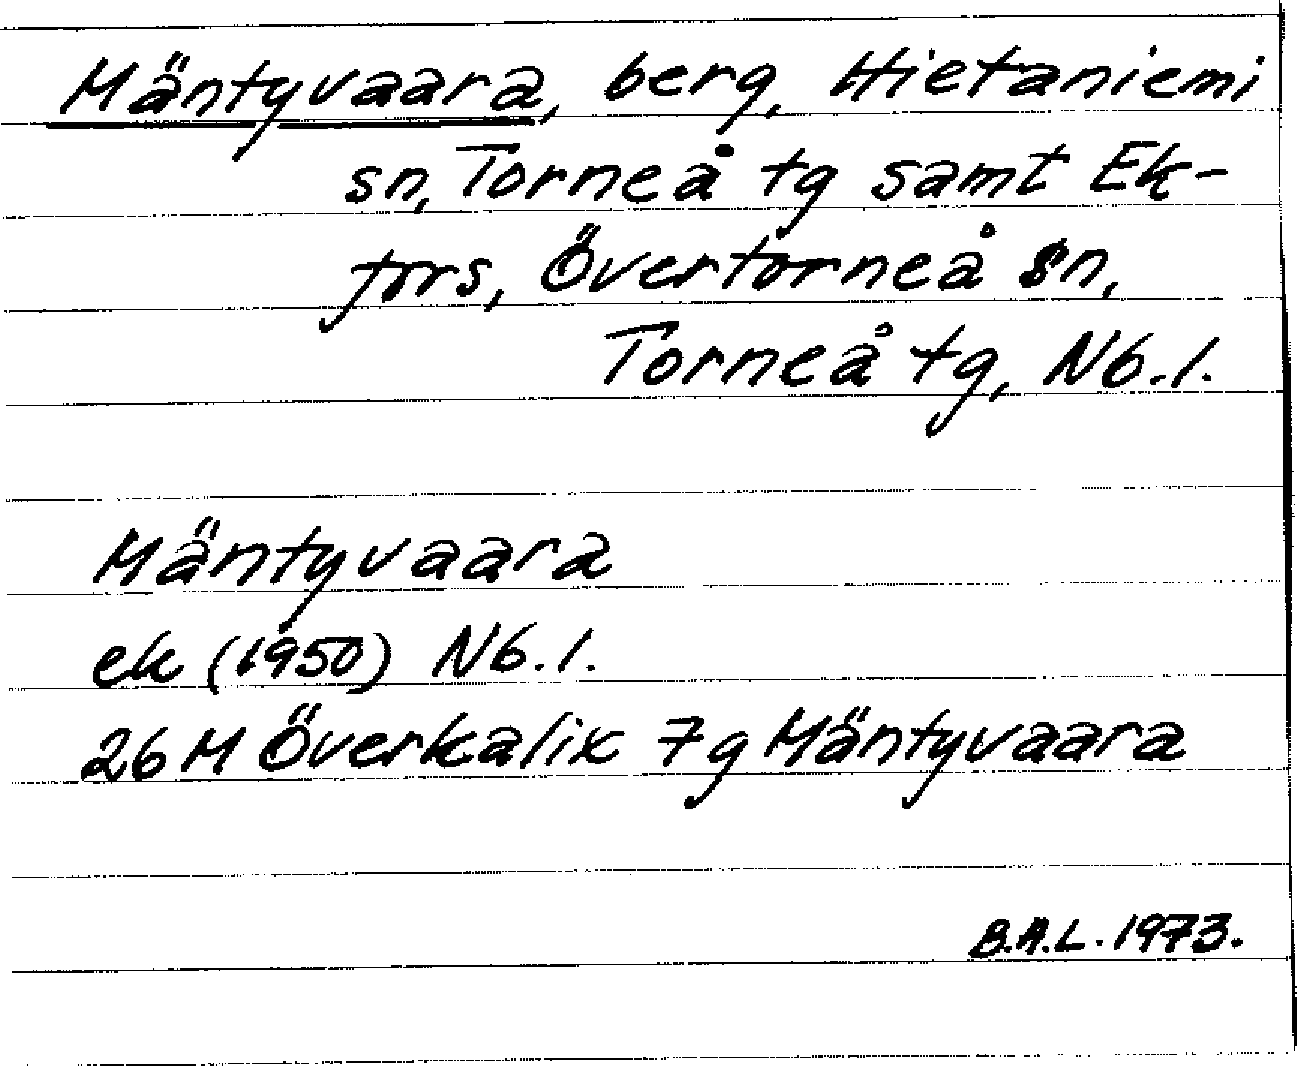 Mäntyvaara, berg, Hietaniemi
sn, Torneå tg samt Ek-
fors, Övertorneå sn,
Torneå tg, Nb.l.
Mäntyvaara
ek (1950) Nb.l.
26 M Överkalix 7g Mäntyvaara
B.A.L. 1973.